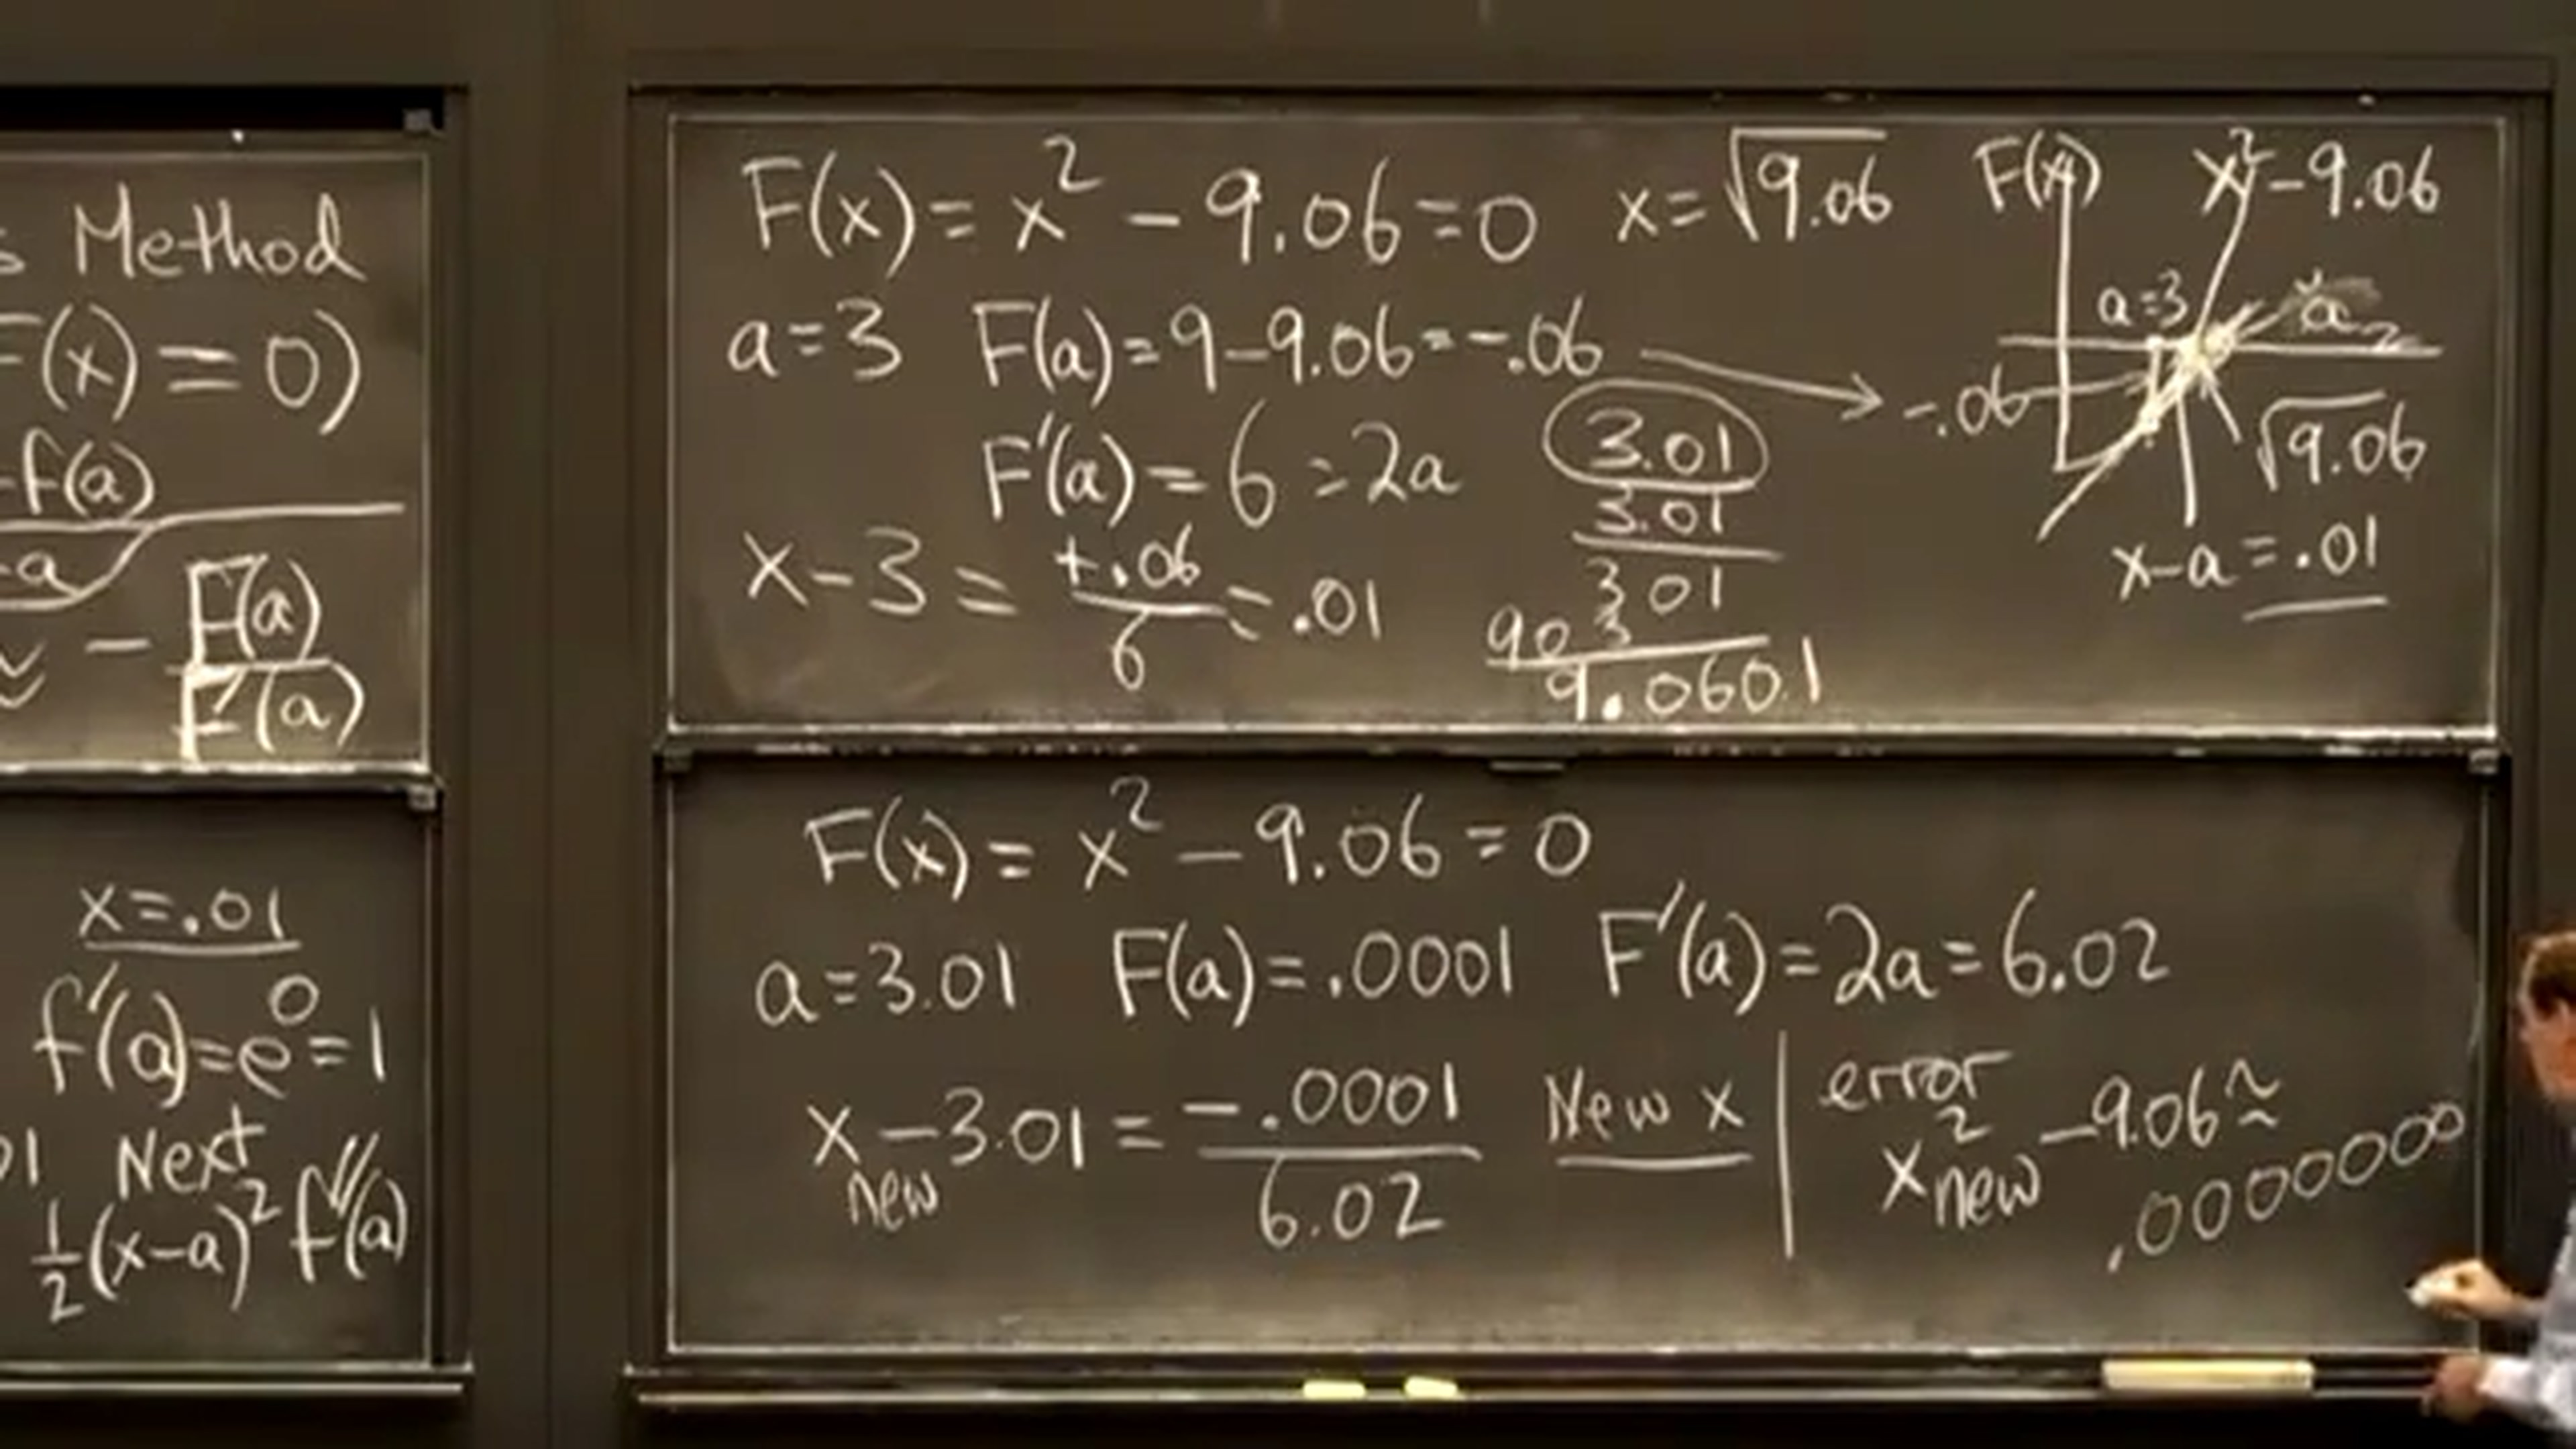 s Method
F(x) = 0)
-f(a)
-a
≈ - F(a)
F'(a)
x=.01
f'(a)=e^0=1
01 Next
1/2 (x-a)^2 f''(a)
F(x) = x^2 - 9.06 = 0 x = √9.06
a=3 F(a)=9-9.06=-.06
F'(a) = 6 = 2a
x-3 = +.06/6 = .01
3.01
3.01
3 01
90 3
9.0601
F(x) x^2-9.06
a=3
-.06
√9.06
x-a=.01
F(x) = x^2 - 9.06 = 0
a=3.01 F(a)=.0001 F'(a)=2a=6.02
x_new - 3.01 = -.0001/6.02 New x
error
x^2_new - 9.06 ≈
.00000000